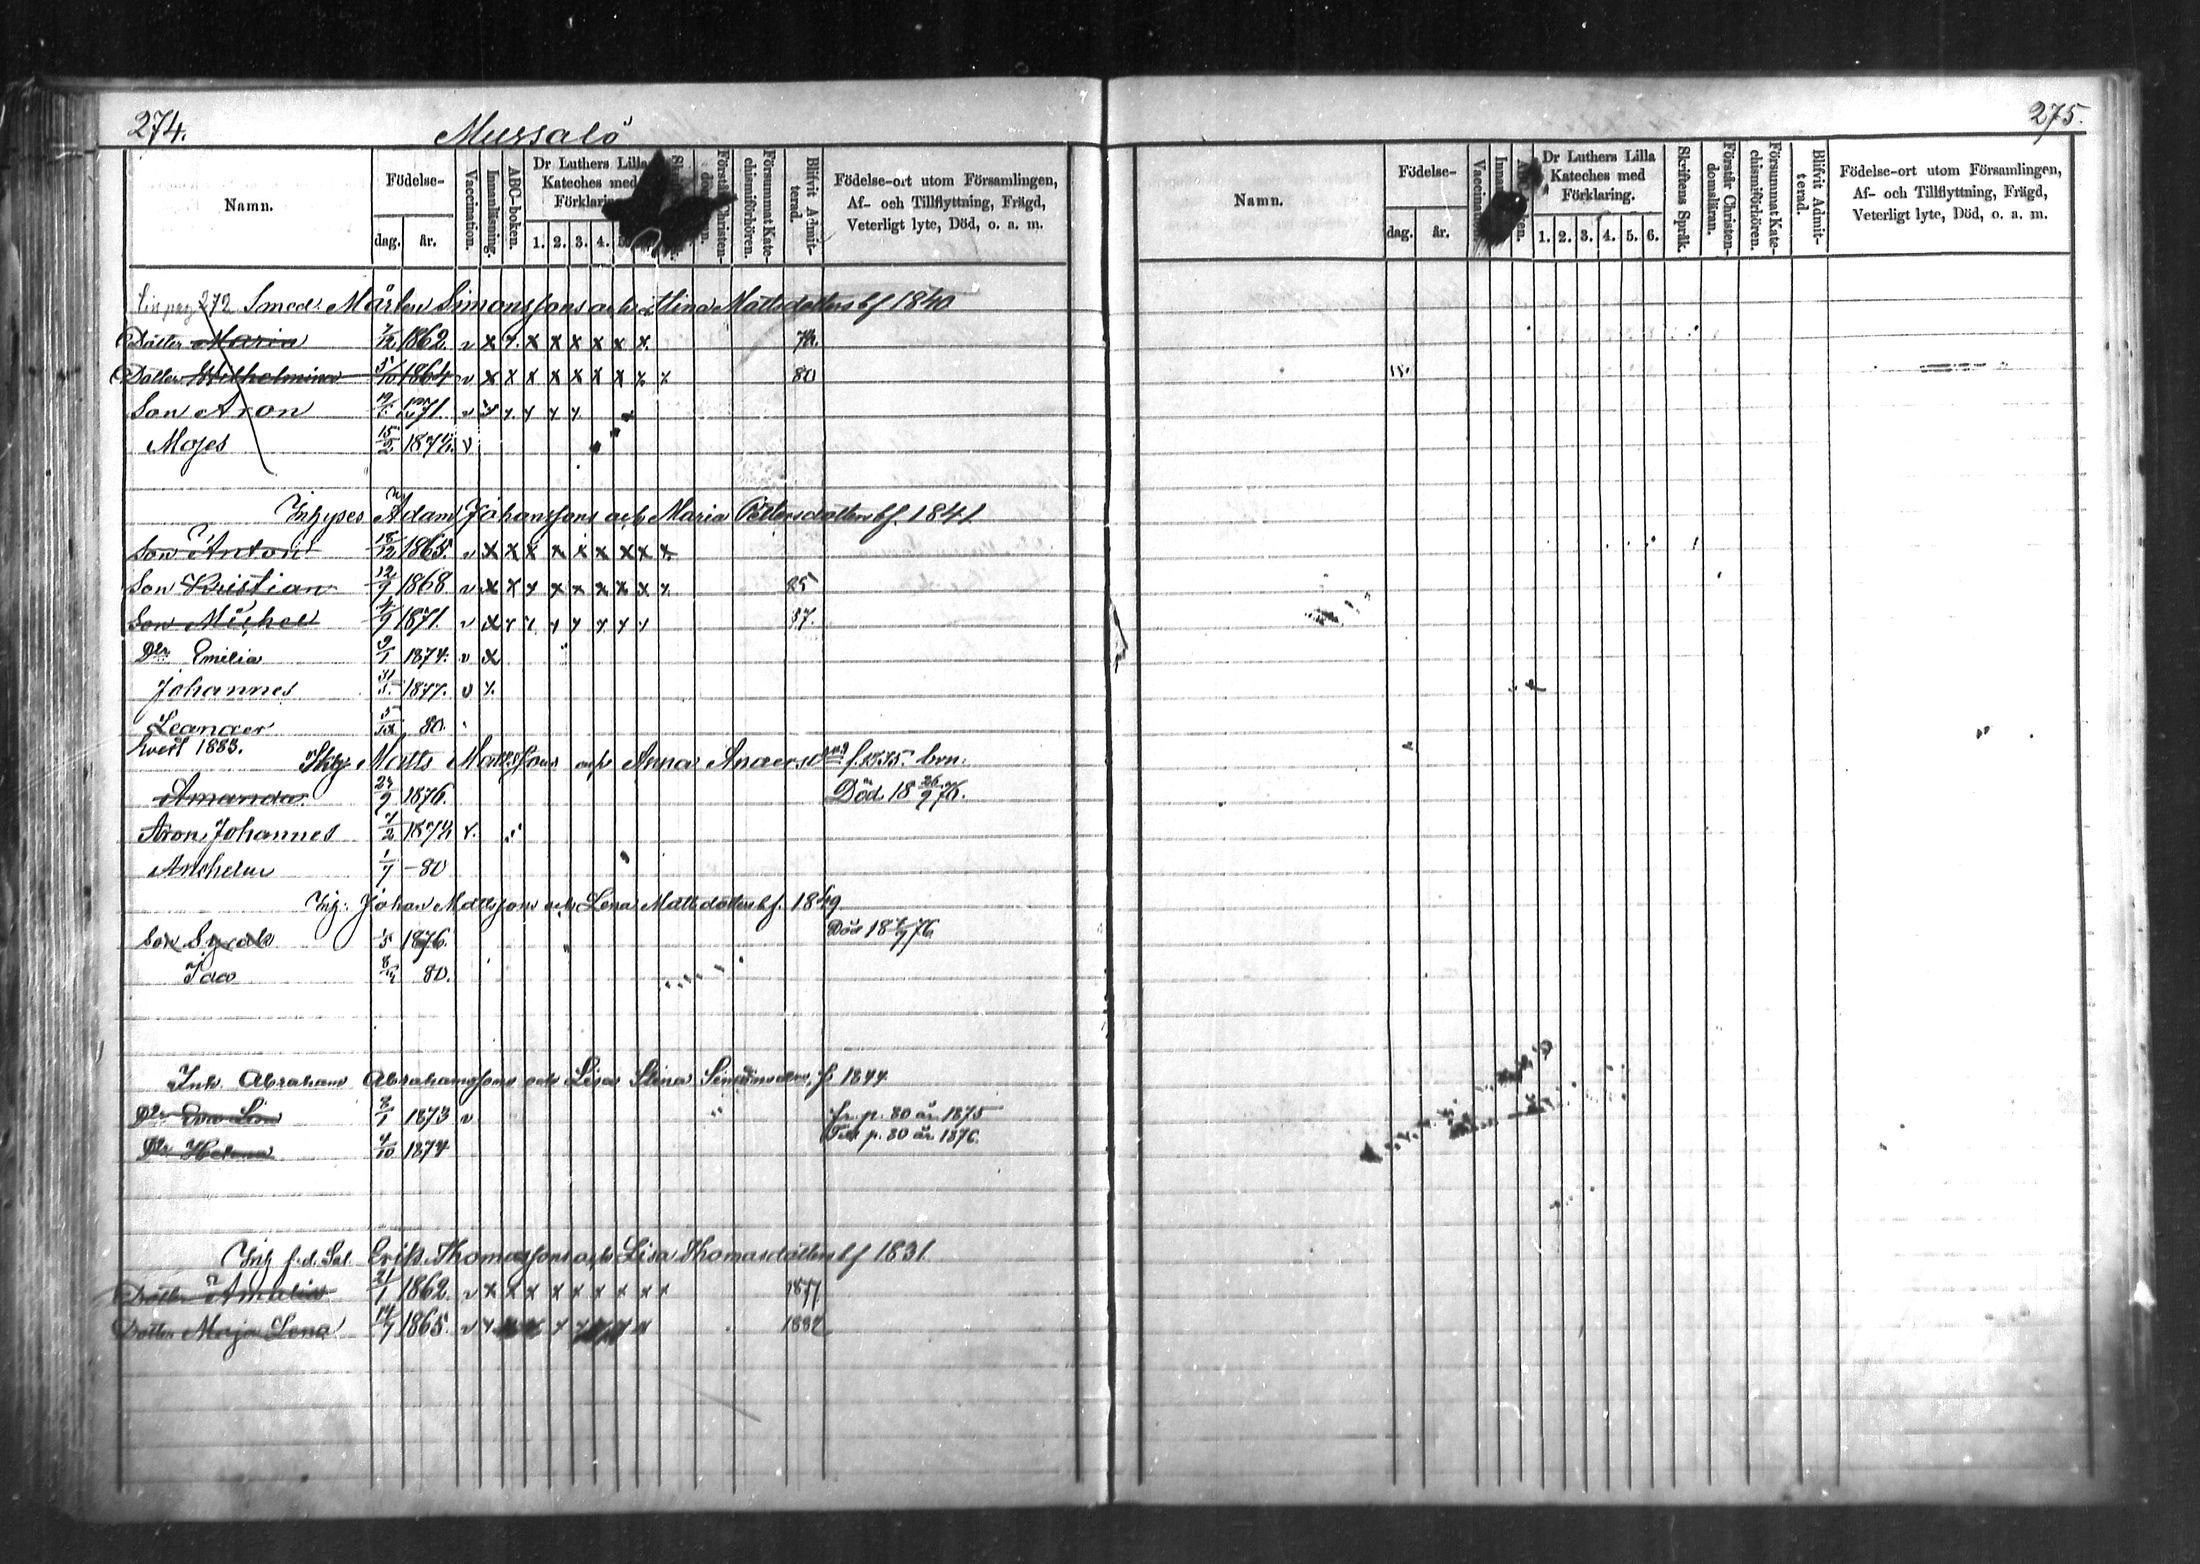 274.
Mussalö
Namn.
Födelse-
dag. år.
Vaccination.
Innanläsning.
ABC-boken.
Dr Luthers Lilla
Kateches med
1. 2. 3. 4.
Försummat Kate-
chismiförhören.
Blifvit Admit-
terad.
Födelse-ort utom Församlingen,
Af- och Tillflyttning, Frägd,
Veterligt lyte, Död, o. a. m.
272 Smed. Mårten Simonssons och Stina Mattsdotters bf 1840
Dotter Maria 1862 v x x x x x x x x
Dotter Wilhelmina 5/10 1864 v x x x x x x x x x 80
Son Aron 1871 v x x x x x
Moses 15/2 1874 v
Inhyses Adam Johanssons och Maria Pettersdotters bf. 1841
Son Anton 18/12 1865 v x x x x x x x x x
Son Kristian 12/9 1868 v x x x x x x x x x 85
Son Michel 4/9 1871 v x x x x x x x x 87.
Dtr Emilia 9/1 1874 v x
Johannes 31/5 1877. v x
Leander 80.
Evert 1883.
Inhy. Matts Mattssons och Anna f. brn.
Amanda 1876. Död 18 26/9 76.
Aron Johannes 7/2 1874 v.
Anshelm 1/7 80
Inh. Johan Mattssons och Lena Mattsdotters bf. 1849
Son 1876. Död 76
Ida 80.
Inh Abraham Abrahamssons och Lisa Stina Simonsdtrs f 1844
Dtr Eva 8/1 1873 v fr. p. 80 år 1875
Dtr Helena 4/10 1874 p. 80 år 1876.
Inh f.d. Sol. Erik Thomassons och Lisa Thomasdotters bf 1831
Dotter Amalia 21/1 1862 v x x x x x x x x x 1877
Dotter Maja Lena 14/7 1865. v x x x x x x x x 1882
275.
Namn.
Födelse-
dag. år.
Vaccination.
Dr Luthers Lilla
Kateches med
Förklaring.
1. 2. 3. 4. 5. 6.
Skriftens Språk.
Förstår Christen-
domsläran.
Försummat Kate-
chismiförhören.
Blifvit Admit-
terad.
Födelse-ort utom Församlingen,
Af- och Tillflyttning, Frägd,
Veterligt lyte, Död, o. a. m.